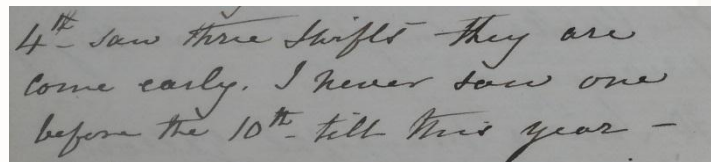 4th saw three Swifts they are
come early. I never saw one
before the 10th till this year –